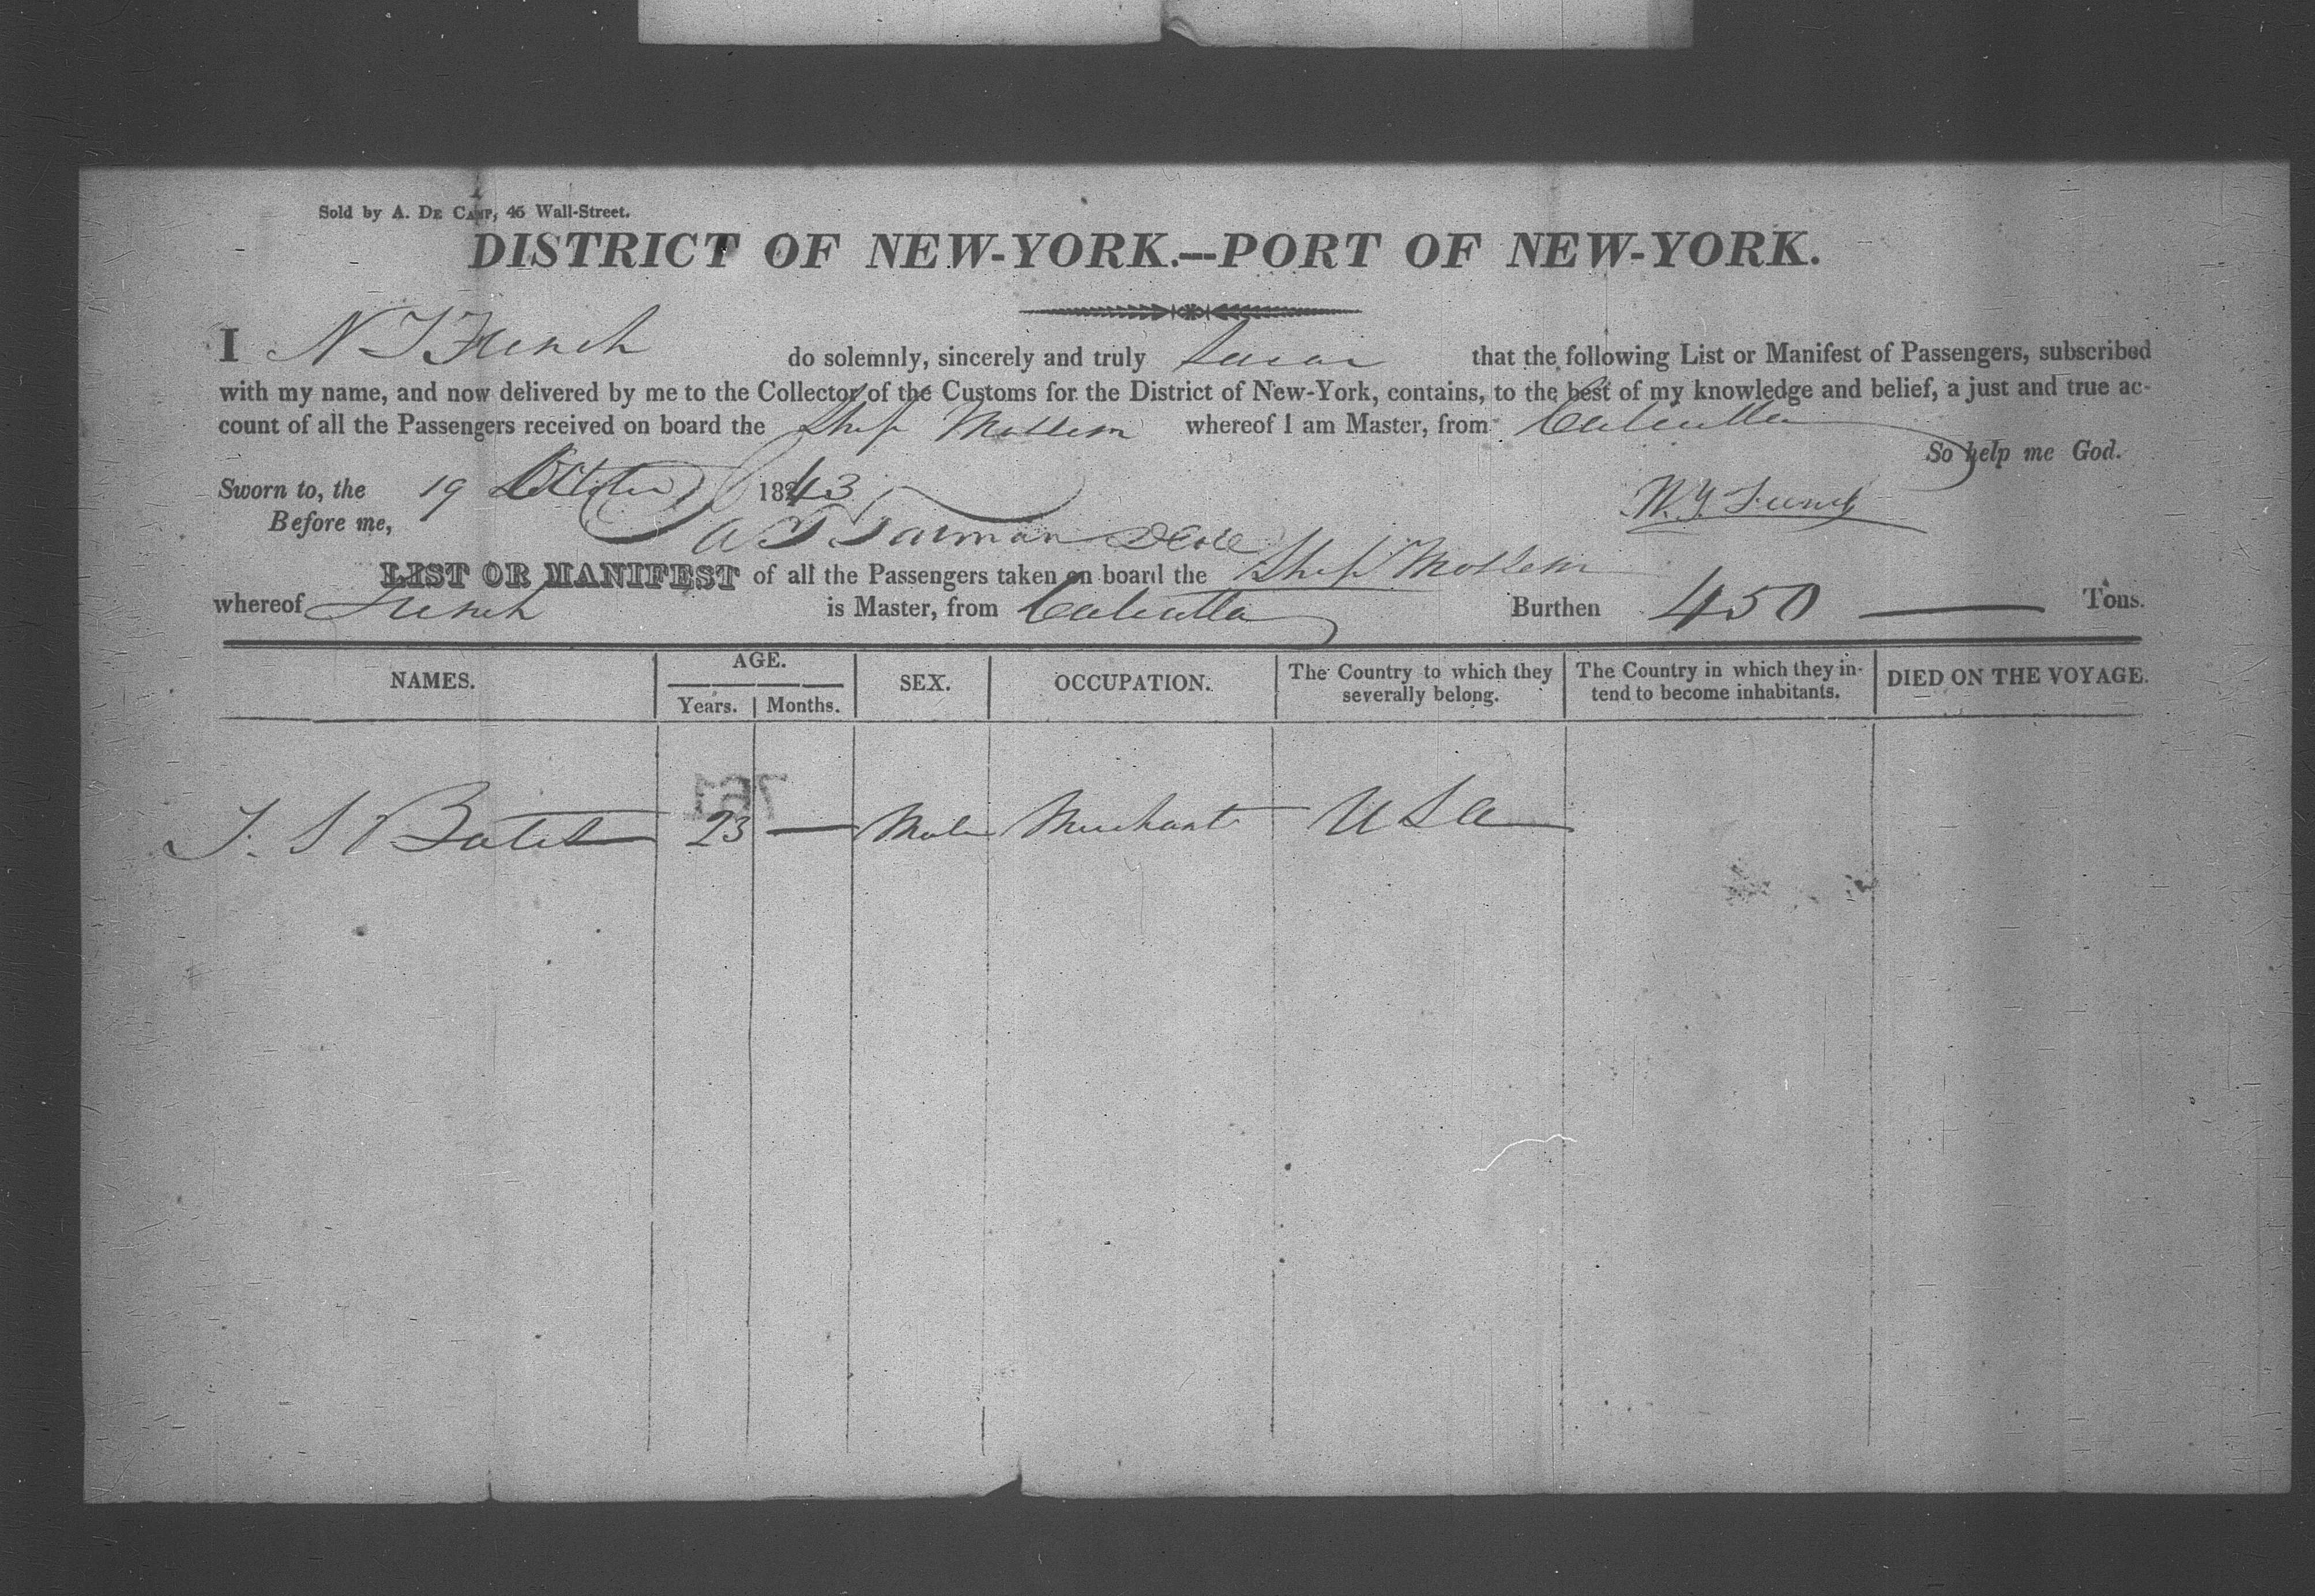 Sold by A. DE CAMP, 45 Wall-Street.
DISTRICT OF NEW-YORK.—PORT OF NEW-YORK.
I N do solemnly, sincerely and truly swear that the following List or Manifest of Passengers, subscribed
with my name, and now delivered by me to the Collector of the Customs for the District of New-York, contains, to the best of my knowledge and belief, a just and true ac-
count of all the Passengers received on board the Ship whereof I am Master, from Calcutta
So help me God.
Sworn to, the 19 October 1843
Before me,
LIST OR MANIFEST of all the Passengers taken on board the Ship
whereof is Master, from Calcutta Burthen 450 Tons.
NAMES. AGE. Years. Months. SEX. OCCUPATION. The Country to which they severally belong. The Country in which they in-tend to become inhabitants. DIED ON THE VOYAGE.
Bates 23 — Male Merchant U S A